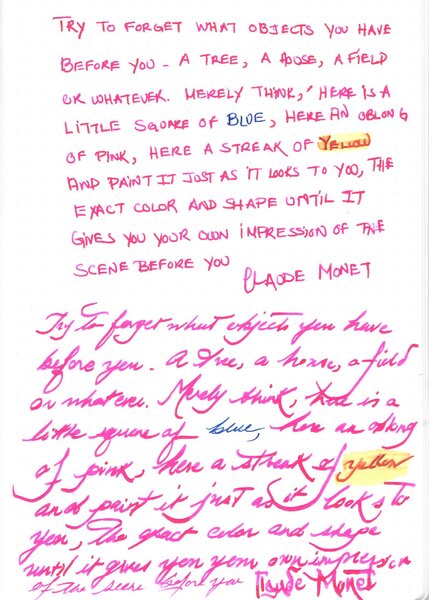 TRY TO FORGET WHAT OBJECTS YOU HAVE
BEFORE YOU - A TREE, A HOUSE, A FIELD
OR WHATEVER. MERELY THINK, 'HERE IS A
LITTLE SQUARE OF BLUE, HERE AN OBLONG
OF PINK, HERE A STREAK OF YELLOW
AND PAINT IT JUST AS IT LOOKS TO YOU, THE
EXACT COLOR AND SHAPE UNTIL IT
GIVES YOU YOUR OWN IMPRESSION OF THE
SCENE BEFORE YOU
CLAUDE MONET
Try to forget what objects you have
before you. A tree, a house, a field
or whatever. Merely think, here is a
little square of blue, here an oblong
of pink, here a streak of yellow
and paint it just as it looks to
you, the exact color and shape
until it gives you your own impression
of the scene before you Claude Monet